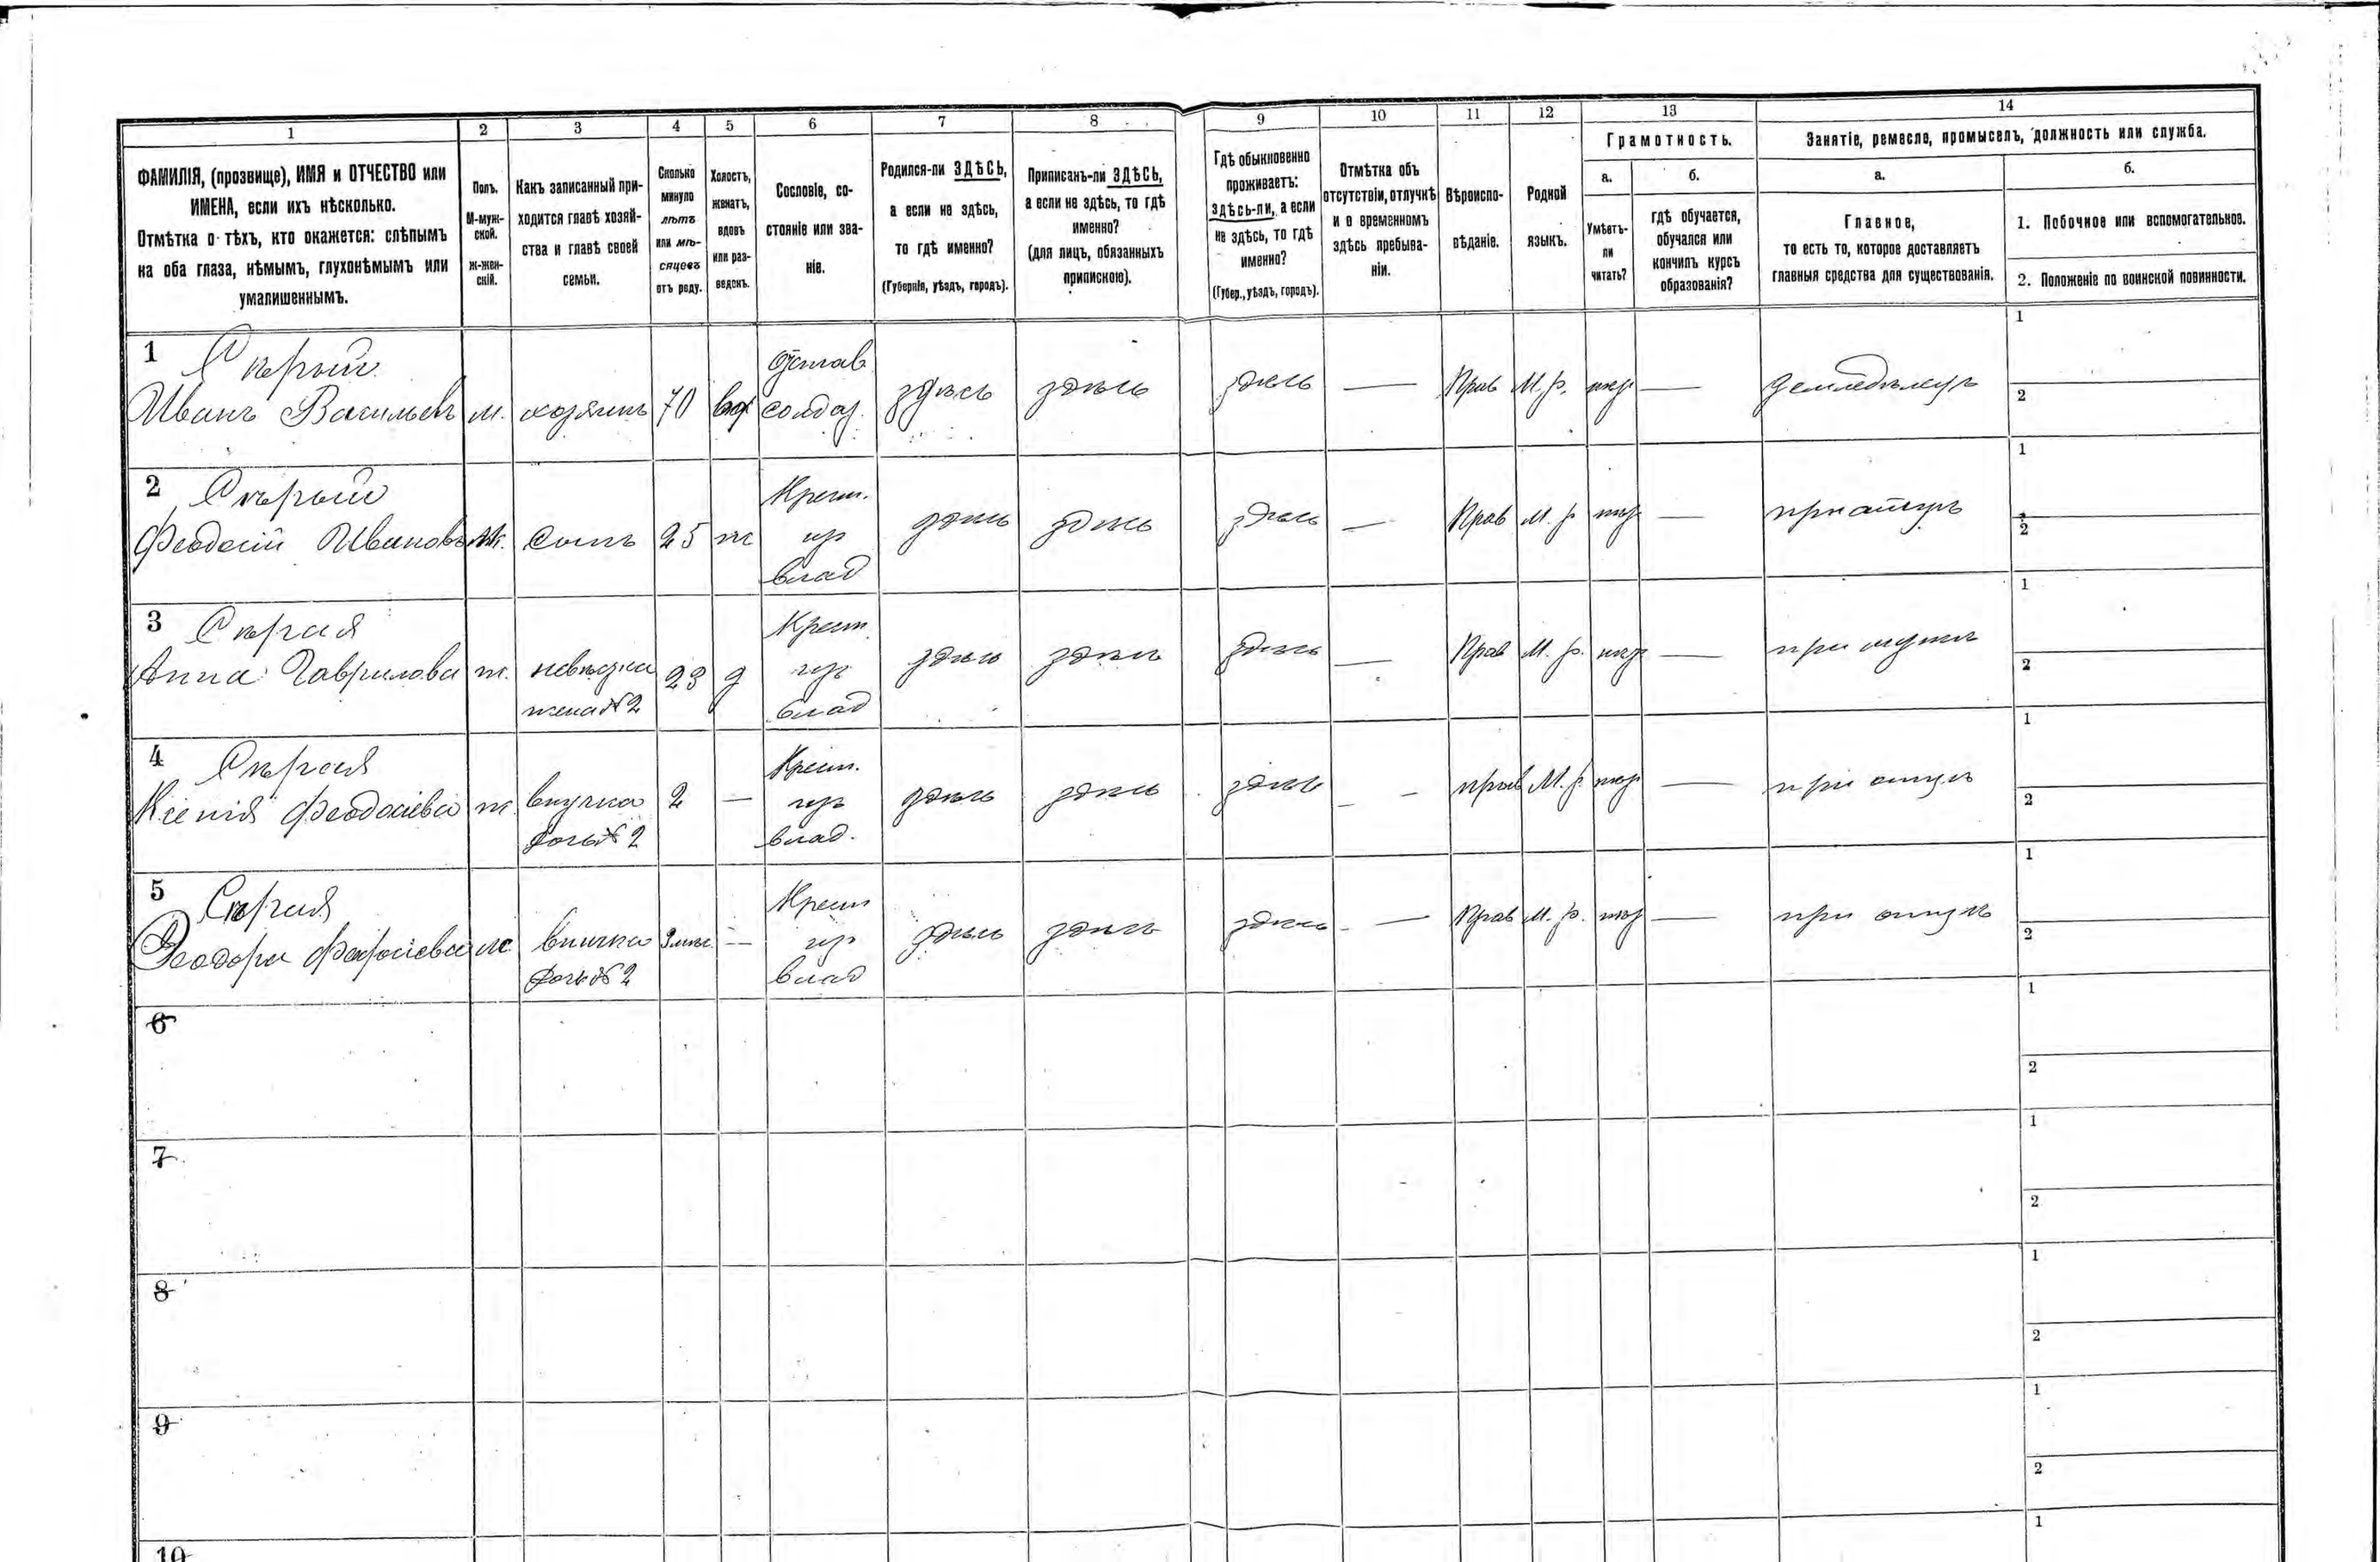 1 2 3 4 5 6 7 8 9 10 11 12 13 14
ФАМИЛІЯ, (прозвище), ИМЯ и ОТЧЕСТВО или
ИМЕНА, если ихъ нѣсколько.
Отмѣтка о тѣхъ, кто окажется: слѣпымъ
на оба глаза, нѣмымъ, глухонѣмымъ или
умалишеннымъ.
Полъ.
М-муж-
ской.
Ж-жен-
скій.
Какъ записанный при-
ходится главѣ хозяй-
ства и главѣ своей
семьи.
Сколько
минуло
лѣтъ
или мѣ-
сяцевъ
отъ роду.
Холостъ,
женатъ,
вдовъ
или раз-
веденъ.
Сословіе, со-
стояніе или зва-
ніе.
Родился-ли ЗДѢСЬ,
а если не здѣсь,
то гдѣ именно?
(Губернія, уѣздъ, городъ).
Приписанъ-ли ЗДѢСЬ,
а если не здѣсь, то гдѣ
именно?
(для лицъ, обязанныхъ
припискою).
Гдѣ обыкновенно
проживаетъ:
здѣсь-ли, а если
не здѣсь, то гдѣ
именно?
(Губер., уѣздъ, городъ).
Отмѣтка объ
отсутствіи, отлучкѣ
и о временномъ
здѣсь пребыва-
ніи.
Вѣроиспо-
вѣданіе.
Родной
языкъ.
Грамотность.
а.
Умѣетъ-
ли
читать?
б.
гдѣ обучается,
обучался или
кончилъ курсъ
образованія?
Занятіе, ремесло, промыселъ, должность или служба.
а.
Главное,
то есть то, которое доставляетъ
главныя средства для существованія.
б.
1. Побочное или вспомогательное.
2. Положеніе по воинской повинности.
1 Сѣрый
Иванъ Васильевъ м. хозяинъ 70 вд отстав солдат. здѣсь здѣсь здѣсь — Прав М.р. нѣт — земледѣлецъ
1
2
2 Сѣрый
Феодосій Ивановъ м. сынъ 25 ж Крест. из влад здѣсь здѣсь здѣсь — Прав М.р нѣт — при отцѣ
1
2
3 Сѣрая
Анна Гаврилова ж. невѣстка жена № 2 23 з Крест. из влад здѣсь здѣсь здѣсь — Прав М.р. нѣт — при мужѣ
1
2
4 Сѣрая
Ксенія Феодосіева ж. внучка дочь № 2 2 — Крест. из влад. здѣсь здѣсь здѣсь — прав М.р. нѣт — при отцѣ
1
2
5 Сѣрая
Феодора Феодосіева ж. внучка дочь № 2 — Крест из влад здѣсь здѣсь здѣсь — Прав М.р. нѣт — при отцѣ
1
2
6
1
2
7
1
2
8
1
2
9
1
2
10
1